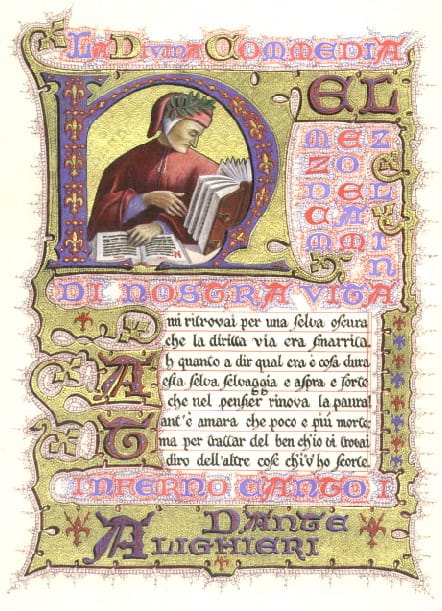 LA DIVINA COMMEDIA
NEL
MEZ
ZO
DEL
CAM
MIN
DI NOSTRA VITA
mi ritrovai per una selva oscura
che la diritta via era smarrita.
Ah quanto a dir qual era è cosa dura
esta selva selvaggia e aspra e forte
che nel pensier rinova la paura!
Tant'è amara che poco e più morte;
ma per trattar del ben ch'io vi trovai
diro dell'altre cose ch'i v'ho scorte.
INFERNO CANTO I
DANTE
ALIGHIERI